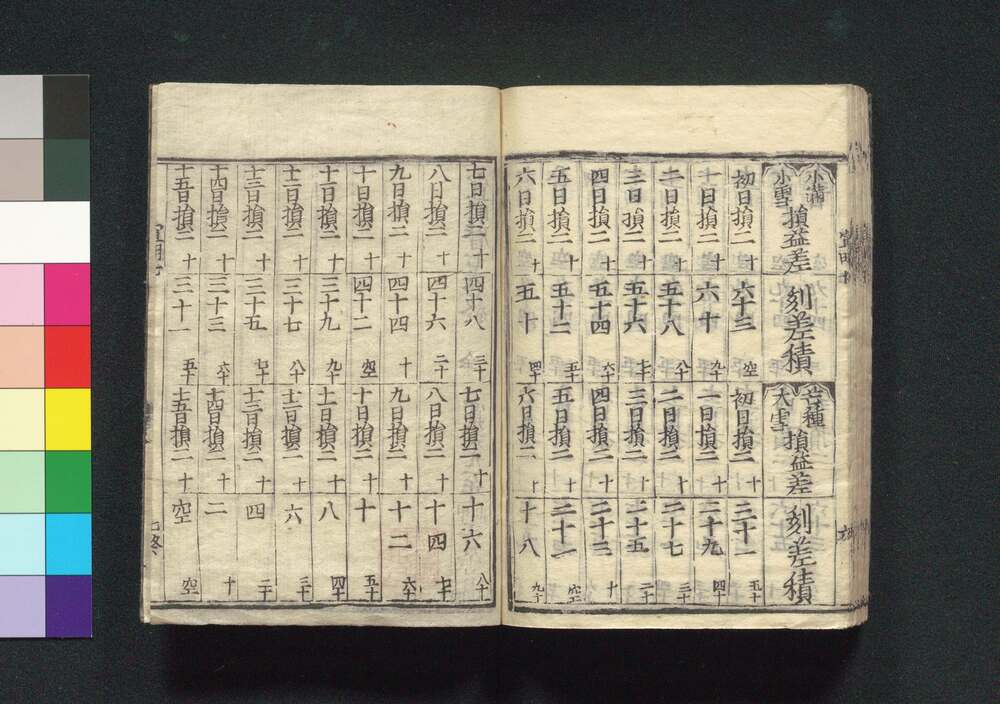 小満
小雪
損益差 刻差積
芒種
大雪
損益差 刻差積
初日損二 十 六十三 空 初日損二 十 三十一 五十
一日損二 十 六十 九十 一日損二 十 二十九 四十
二日損二 十 五十八 八十 二日損二 十 二十七 三十
三日損二 十 五十六 七十 三日損二 十 二十五 二十
四日損二 十 五十四 六十 四日損二 十 二十三 十
五日損二 十 五十二 五十 五日損二 十 二十一 空
六日損二 十 五十 四十 六日損二 十 十八 九十
七日損二 十 四十八 三十 七日損二 十 十六 八十
八日損二 十 四十六 二十 八日損二 十 十四 七十
九日損二 十 四十四 十 九日損二 十 十二 六十
十日損二 十 四十二 空 十日損二 十 十 五十
十一日損二 十 三十九 九十 十一日損二 十 八 四十
十二日損二 十 三十七 八十 十二日損二 十 六 三十
十三日損二 十 三十五 七十 十三日損二 十 四 二十
十四日損二 十 三十三 六十 十四日損二 十 二 十
十五日損二 十 三十一 五十 十五日損二 十 空 空
宣明七
七終